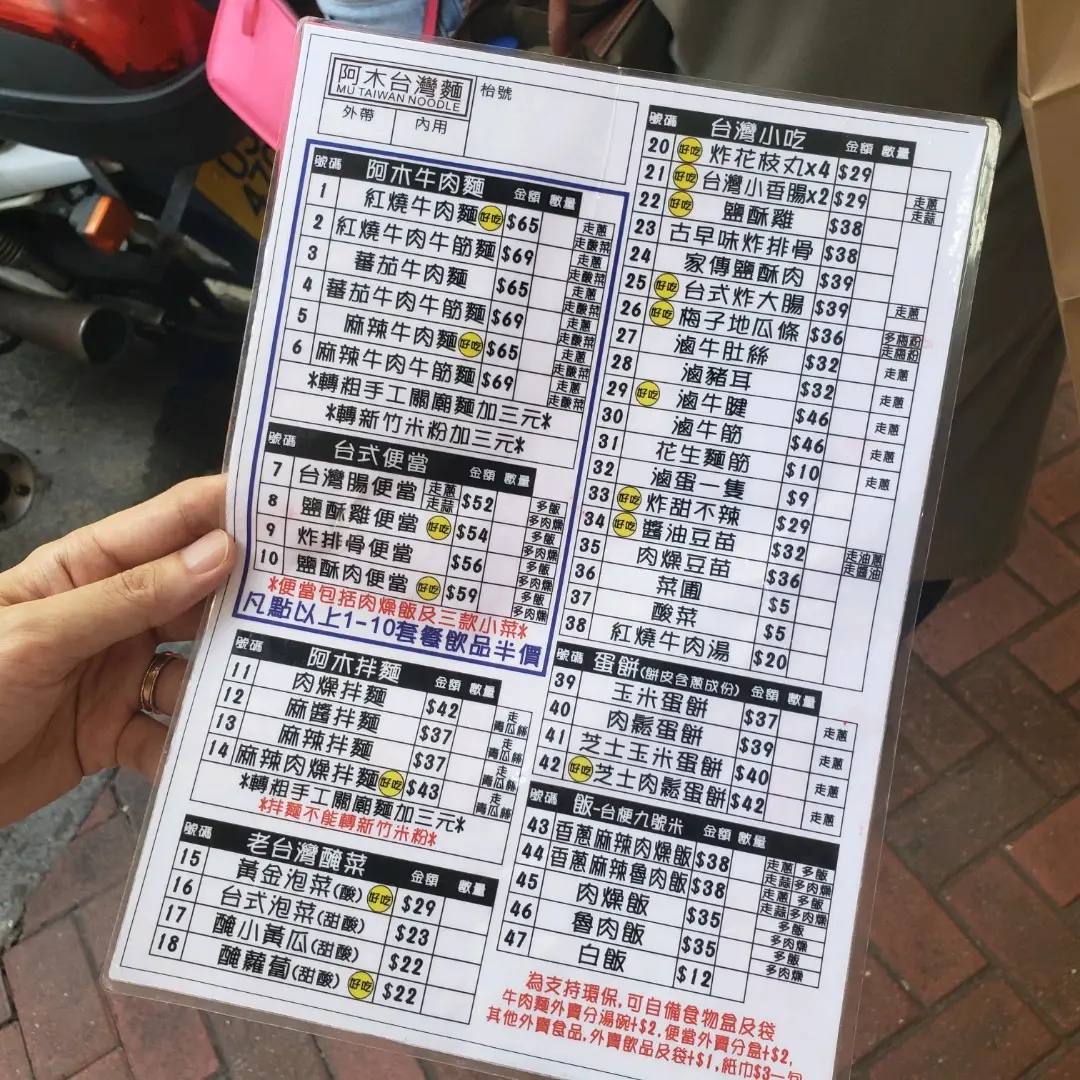 阿木台灣麵
MU TAIWAN NOODLE
枱號
外帶 內用
號碼 阿木牛肉麵 金額 數量
1 紅燒牛肉麵 好吃 $65 走蔥 走酸菜
2 紅燒牛肉牛筋麵 $69 走蔥 走酸菜
3 蕃茄牛肉麵 $65 走蔥 走酸菜
4 蕃茄牛肉牛筋麵 $69 走蔥 走酸菜
5 麻辣牛肉麵 好吃 $65 走蔥 走酸菜
6 麻辣牛肉牛筋麵 $69 走蔥 走酸菜
*轉粗手工關廟麵加三元*
*轉新竹米粉加三元*
號碼 台式便當 金額 數量
7 台灣腸便當 走蔥 走蒜 $52 多飯 多肉燥
8 鹽酥雞便當 好吃 $54 多飯 多肉燥
9 炸排骨便當 $56 多飯 多肉燥
10 鹽酥肉便當 好吃 $59 多飯 多肉燥
*便當包括肉燥飯及三款小菜*
凡點以上1-10套餐飲品半價
號碼 阿木拌麵 金額 數量
11 肉燥拌麵 $42 走青瓜絲
12 麻醬拌麵 $37 走青瓜絲
13 麻辣拌麵 $37 走青瓜絲
14 麻辣肉燥拌麵 好吃 $43 走青瓜絲
*轉粗手工關廟麵加三元*
*拌麵不能轉新竹米粉*
號碼 老台灣醃菜 金額 數量
15 黃金泡菜(酸) 好吃 $29
16 台式泡菜(甜酸) $23
17 醃小黃瓜(甜酸) $22
18 醃蘿蔔(甜酸) 好吃 $22
號碼 台灣小吃 金額 數量
20 好吃 炸花枝丸x4 $29
21 好吃 台灣小香腸x2 $29 走蔥 走蒜
22 好吃 鹽酥雞 $38
23 古早味炸排骨 $38
24 家傳鹽酥肉 $39
25 好吃 台式炸大腸 $39 走蔥
26 好吃 梅子地瓜條 $36 多梅粉 走梅粉
27 滷牛肚絲 $32 走蔥
28 滷豬耳 $32 走蔥
29 好吃 滷牛腱 $46 走蔥
30 滷牛筋 $46 走蔥
31 花生麵筋 $10
32 滷蛋一隻 $9
33 好吃 炸甜不辣 $29
34 好吃 醬油豆苗 $32 走油蔥 走醬油
35 肉燥豆苗 $36
36 菜圃 $5
37 酸菜 $5
38 紅燒牛肉湯 $20
號碼 蛋餅(餅皮含蔥成份) 金額 數量
39 玉米蛋餅 $37 走蔥
40 肉鬆蛋餅 $39 走蔥
41 芝士玉米蛋餅 $40 走蔥
42 好吃 芝士肉鬆蛋餅 $42 走蔥
號碼 飯-台梗九號米 金額 數量
43 香蔥麻辣肉燥飯 $38 走蔥 多飯 走蒜 多肉燥
44 香蔥麻辣魯肉飯 $38 走蔥 多飯 走蒜 多肉燥
45 肉燥飯 $35 多飯 多肉燥
46 魯肉飯 $35 多飯 多肉燥
47 白飯 $12
為支持環保,可自備食物盒及袋
牛肉麵外賣分湯碗+$2,便當外賣分盒+$2,
其他外賣食品,外賣飲品及袋+$1,紙巾$3一包